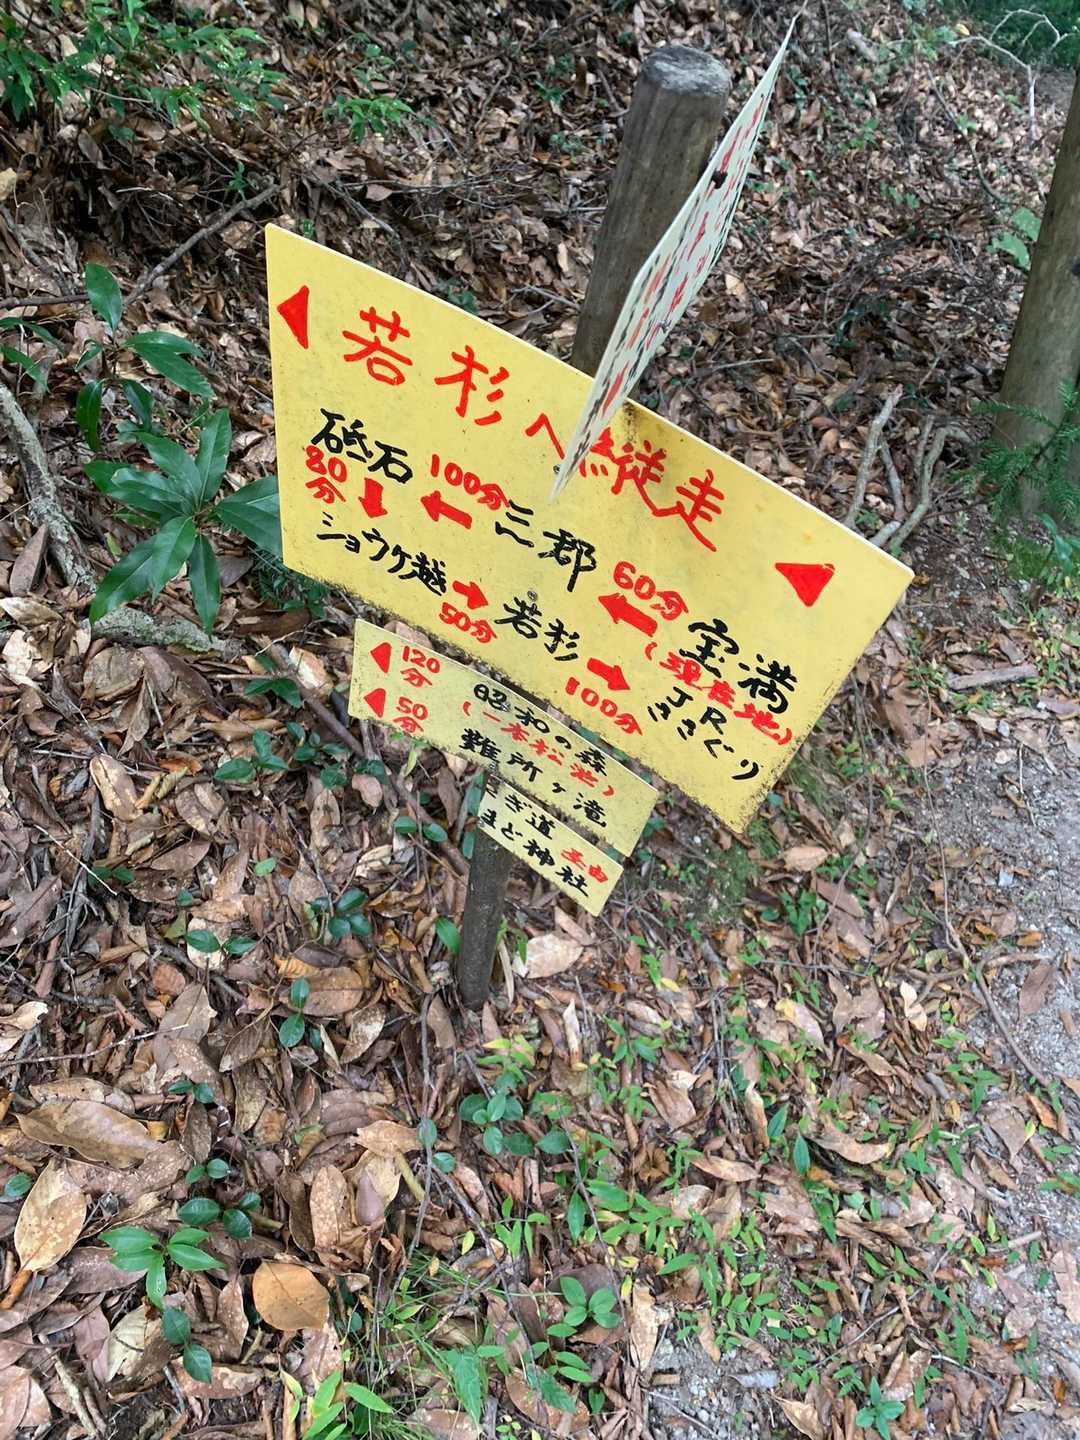 若杉へ縦走
砥石 100分 三郡 60分 宝満
80分 (現在地)
ショウケ越 50分 若杉 100分 JRささぐり
120分 昭和の森
(一本松池)
50分 難所ヶ滝
ぎ道
まど神社 至由